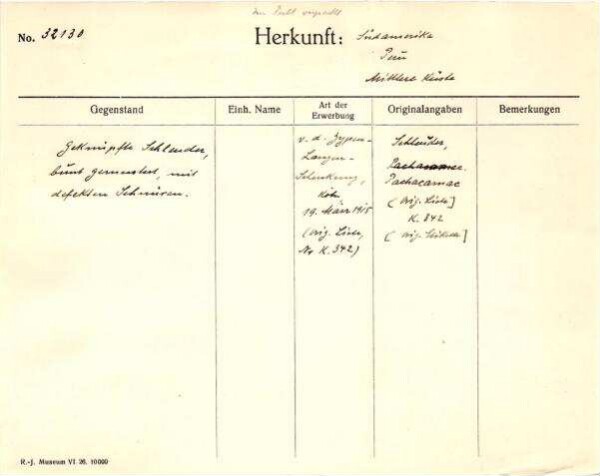 No. 32130
Herkunft: Südamerika
Peru
Mittlere Küste
Gegenstand
Einh. Name
Art der Erwerbung
Originalangaben
Bemerkungen
Geknüpfte Schleuder,
bunt gemustert, mit
defekten Schnüren.
v. d. Zypen-
Langen-
Schenkung,
Köln
19. März 1915
(Orig. Liste,
No K. 342)
Schleuder,
Pachacamac
(Orig. Liste]
K. 842
(Orig. Etikette]
R.-J. Museum VI 26. 10000